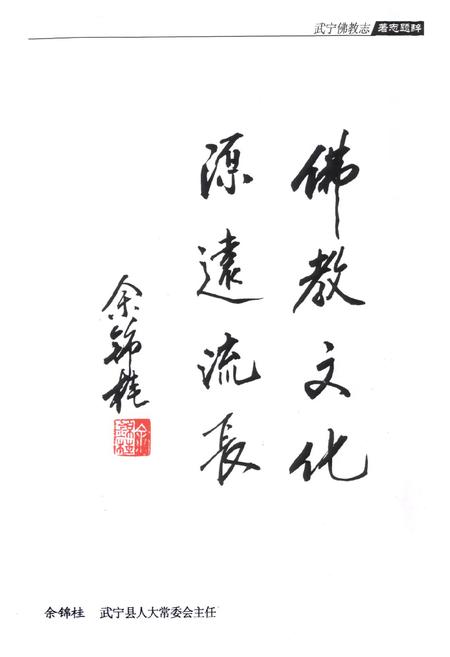 武宁佛教志 著志题辞
佛教文化
源遠流長
余锦桂
余锦桂 武宁县人大常委会主任